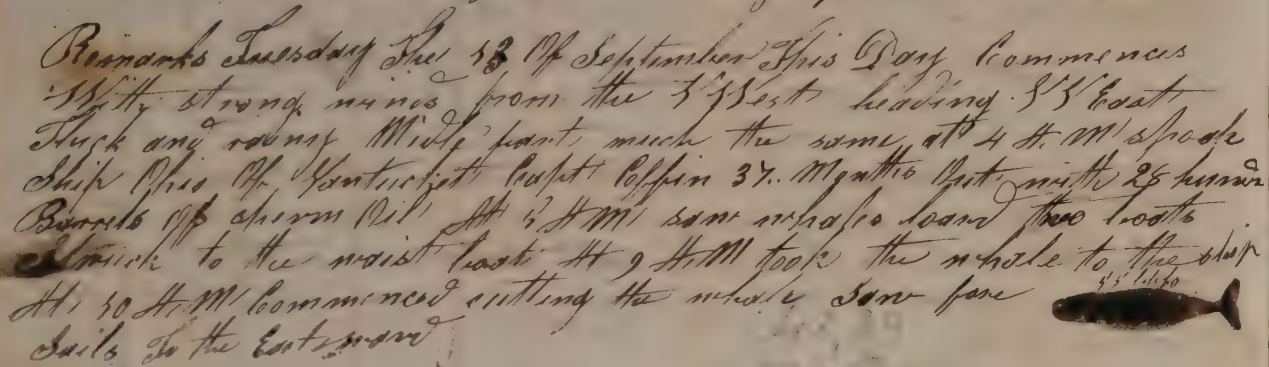 Remarks Tuesday The 13 Of September This Day Commences
With strong winds from the S West heading S S East
Thick and rainy Midle part much the same at 4 A.M spook
Ship Ohio Of Nantucket Capt Coffin 37 Months Out with 28 hundr
Barrels Of sperm Oil At 5 A M saw whales loard two boats
Struck to the waist boat At 9 A.M took the whale to the ship
At 10 A.M Commenced cutting the whale Saw fore
Sails To the Eastward